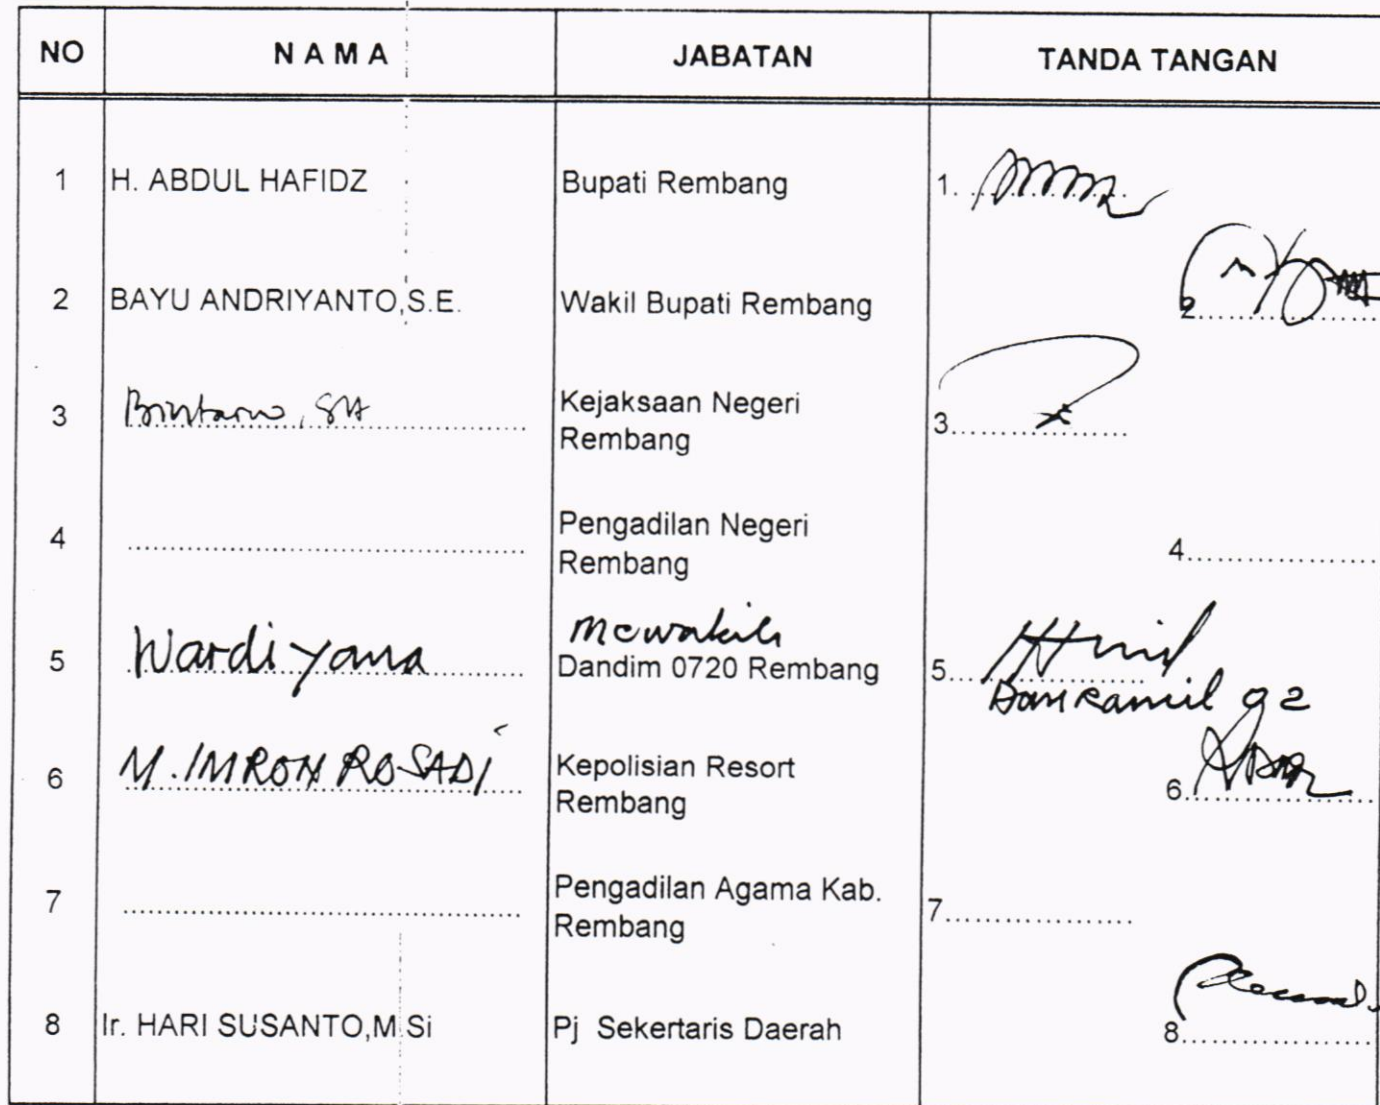 NO NAMA JABATAN TANDA TANGAN
1 H. ABDUL HAFIDZ Bupati Rembang 1.
2 BAYU ANDRIYANTO,S.E. Wakil Bupati Rembang 2
3 Bintarno, SH Kejaksaan Negeri
Rembang 3
4 Pengadilan Negeri
Rembang 4
mewakili
5 Wardiyana Dandim 0720 Rembang 5
Danramil 02
6 M. IMRON ROSADI Kepolisian Resort
Rembang 6
7 Pengadilan Agama Kab.
Rembang 7
8 Ir. HARI SUSANTO,M.Si Pj Sekertaris Daerah 8